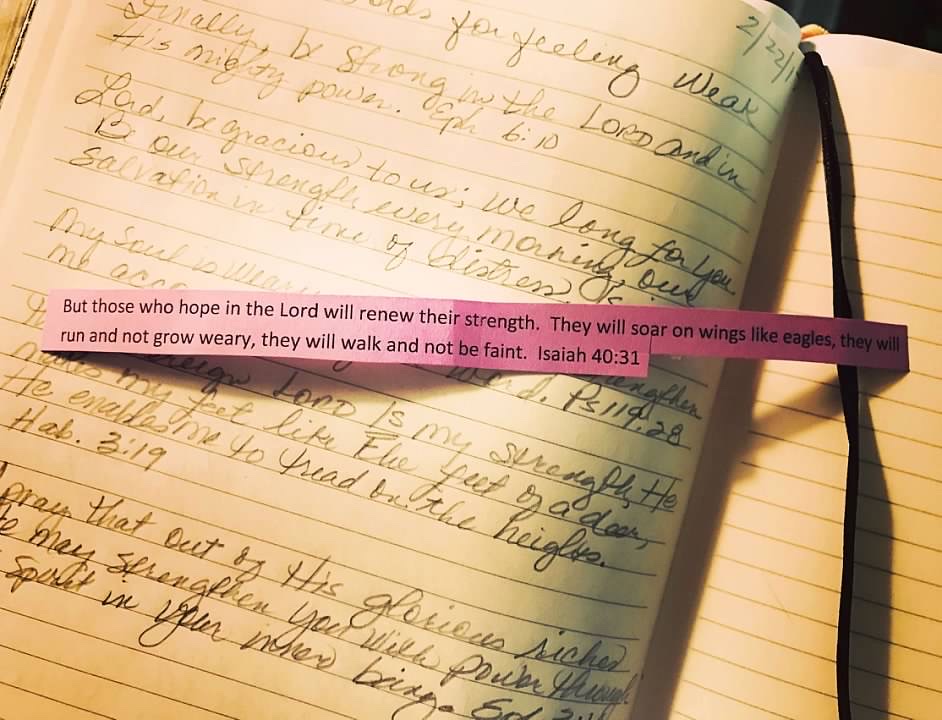 for feeling Weak
2/22/1
Finally, be strong in the LORD and in
His mighty power. Eph 6:10
Lord, be gracious to us; we long for you.
Be our strength every morning, our
salvation in time of distress. Is
My soul is weary
me acco
But those who hope in the Lord will renew their strength. They will soar on wings like eagles, they will
run and not grow weary, they will walk and not be faint. Isaiah 40:31
strengthen
word. Ps 119:28
LORD is my strength, He
makes my feet like the feet of a deer,
He enables me to tread on the heights.
Hab. 3:19
pray that out of His glorious riches
He may strengthen you with power through
Spirit in your inner being. Eph 3:1